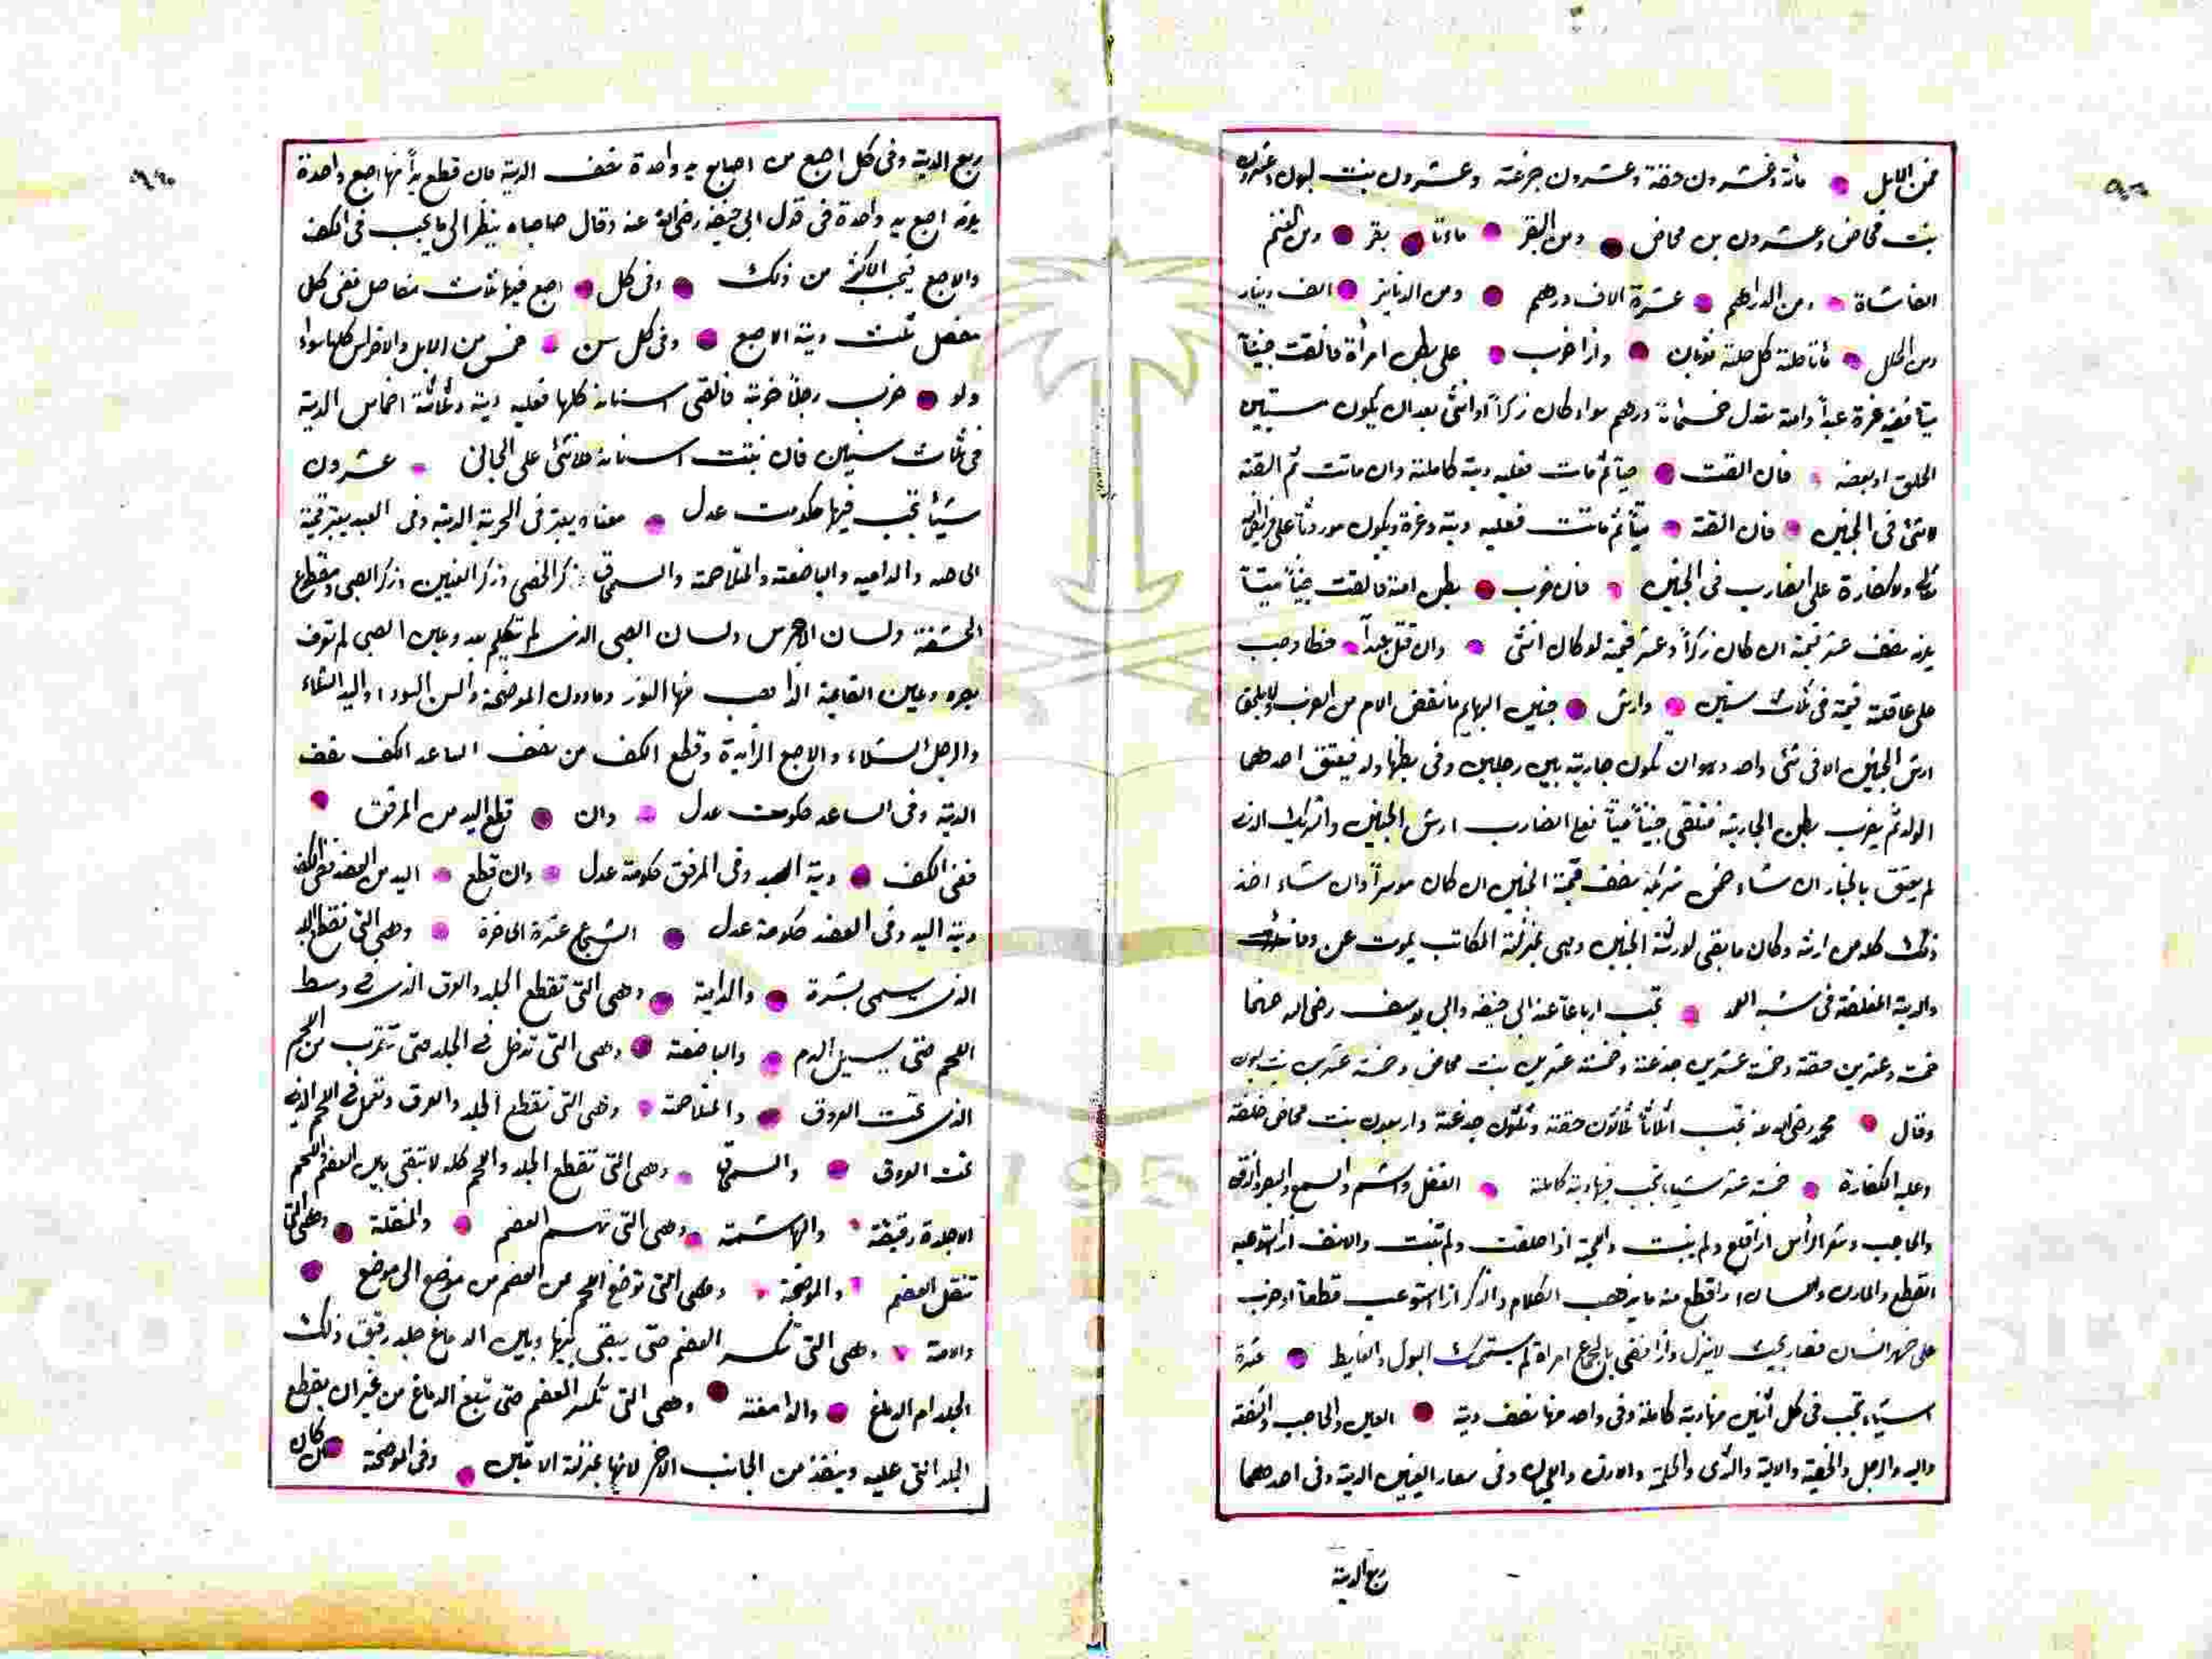 فمن الابل مائة وعشرون حقة وعشرون جذعة وعشرون بنت لبون وعشرون
بنت مخاض وعشرون بن مخاض ومن البقر مائتا بقر ومن الغنم
الفا شاة ومن الدراهم عشرة الاف درهم ومن الدنانير الف دينار
ومن الحلل مأتا حلة كل حلة ثوبان واذا ضرب على بطن امرأة فالقت جنينا
ميتا ففيه غرة عبدا وامة تعدل خمسمائة درهم سواء كان ذكرا او انثى بعد ان يكون مستبين
الخلق او بعضه فان القت حيا ثم مات فعليه دية كاملة وان ماتت ثم القته
لا شئ فى الجنين فان القته ميتا ثم ماتت فعليه دية وغرة ويكون موروثا على فرائض
ولا كفارة على الضارب فى الجنين فان ضرب بطن امة فالقت جنينا ميتا
نصف عشر قيمة ان كان ذكرا وعشر قيمة لو كان انثى وان قتل عبدا خطا وجب
على عاقلته قيمة فى ثلاث سنين وارش جنين البهايم ما نقص الام من الضرب ولا يلحق
ارش الجنين الا فى شئ واحد وهو ان يكون جارية بين رجلين وفى بطنها ولد فيعتق احدهما
الولد ثم يضرب بطن الجارية فتلقى جنينا ميتا فعلى الضارب ارش الجنين والشريك الذى
لم يعتق بالخيار ان شاء ضمن شريكه نصف قيمة الجنين ان كان موسرا وان شاء اخذ
ذلك كله من ارشه وكان ما بقى لورثة الجنين وهى بمنزلة المكاتب يموت عن وفاء
والدية المغلظة فى شبه العمد تجب ارباعا عند ابى حنيفه وابى يوسف رضى الله عنهما
خمسة وعشرين حقة وخمسة عشرين جذعة وخمسة عشرين بنت مخاض وخمسة عشرين بنت لبون
وقال محمد رضى الله عنه تجب اثلاثا ثلاثون حقة وثلثون جذعة واربعون بنت مخاض خلفة
وعليه الكفارة خمسة عشر شياء تجب فيها دية كاملة العقل والشم والسمع والبصر والذوق
والحاجب وشعر الرأس اذا قلع ولم ينبت واللحية اذا حلقت ولم تنبت والانف اذا استوعبه
القطع والمارن واللسان اذا قطع منه ما يذهب الكلام والذكر اذا استوعب قطعا او ضرب
على ظهر انسان فصار بحيث لا ينزل واذا افضى بالجماع امراة لم يستمسك البول والغايط عشرة
اشياء تجب فى كل اثنين منها دية كاملة وفى واحد منها نصف دية العين والحاجب والشفة
واليد والرجل والخصية والالية والثدى والحلمة والاذن واللحيان وفى اشعار العينين الدية وفى احدهما
ربع الدية
ربع الدية وفى كل اصبع من اصابع يد واحدة نصف الدية فان قطع يدا فيها اصبع واحدة
اصبع يد واحدة فى قول ابى حنيفه رضى الله عنه وقال صاحباه ينظر الى ما يجب فى الكف
والاصبع فيجب الاكثر من ذلك وفى كل اصبع فيها ثلث مفاصل ففى كل
مفصل ثلث دية الاصبع وفى كل سن خمس من الابل والاضراس كلها سواء
ولو ضرب رجلا ضربة فالقى اسنانه كلها فعليه دية وثلثة اخماس الدية
فى ثلث سنين فان نبتت اسنانه فلا شئ على الجانى عشرون
شيأ تجب فيها حكومت عدل معناه يعتبر فى الحرية الدية وفى العبد يعتبر قيمة
الخاصه والداميه والباضعة والمتلاحمة والسمحاق ذكر الخصى وذكر العنين وذكر الصبى ومقطوع
الحشفة ولسان الاخرس ولسان الصبى الذى لم يتكلم بعد وعين الصبى لم تعرف
بصره وعين القايمة الذاهب منها النور ومادون الموضحة والسن السودا واليد الشلاء
والرجل الشلاء والاصبع الزايدة وقطع الكف من نصف الساعد الكف نصف
الدية وفى الساعد حكومت عدل وان قطع اليد من المرفق
ففى الكف دية اليد وفى المرفق حكومة عدل وان قطع اليد من العضد ففى الكف
دية اليد وفى العضد حكومة عدل الشجاج عشرة الخاصرة وهى التى تقطع الجلد
الذى يسمى بشرة والدامية وهى التى تقطع الجلد والعرق الذى فى وسط
اللحم حتى يسيل الدم والباضعة وهى التى تدخل فى الجلد حتى تقرب من اللحم
الذى تحت العروق والمتلاحمة وهى التى تقطع الجلد والعرق وتعمل فى اللحم الذى
تحت العروق والسمحاق وهى التى تقطع الجلد واللحم كله لا تبقى بين العظم واللحم
الا جلدة رقيقة والهاشمة وهى التى تهسم العضم والمنقلة وهى التى
تنقل العضم والموضحة وهى التى توضح اللحم من العضم من موضع الى موضع
والامة وهى التى تكسر العضم حتى يبقى بينها وبين الدماغ جلد رقيق ذلك
الجلد ام الدماغ والدامغة وهى التى تكسر العضم حتى تبلغ الدماغ من غير ان يقطع
الجلد التى عليه وينفذ من الجانب الاخر لانها بمنزلة الامتين وفى الموضحة ان كان